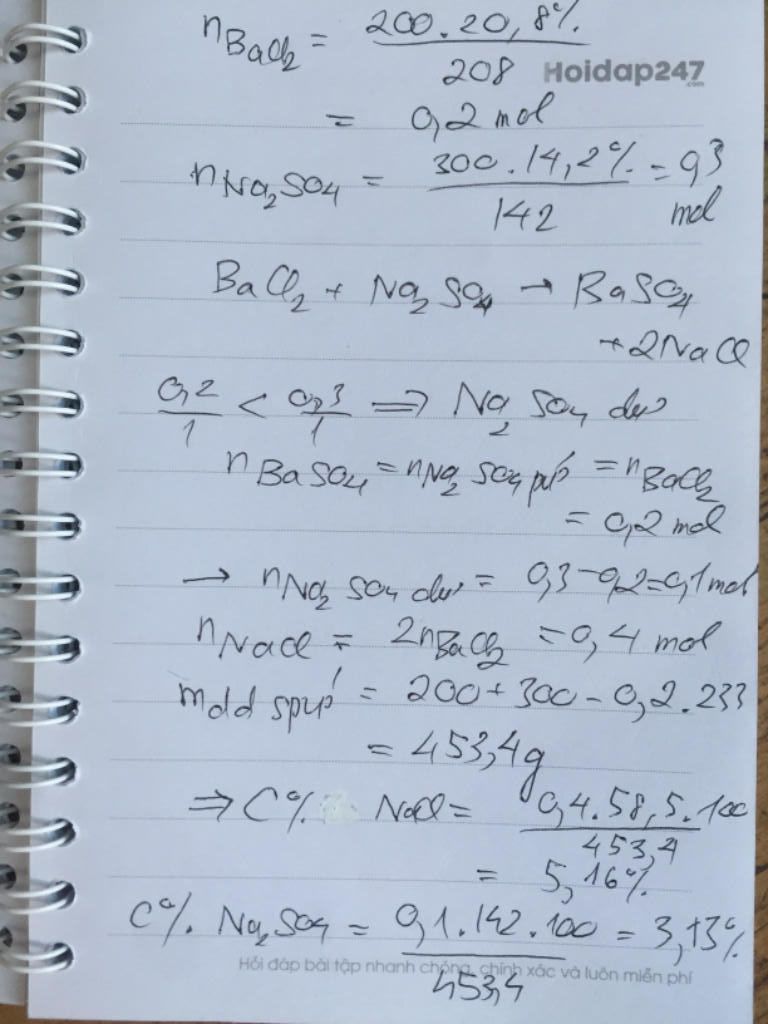 nBaCl2 = 200.20,8% / 208
Hoidap247
.com
= 0,2 mol
nNa2SO4 = 300.14,2% / 142 = 0,3 mol
BaCl2 + Na2SO4 → BaSO4
+ 2NaCl
0,2/1 < 0,3/1 ⇒ Na2SO4 dư
nBaSO4 = nNa2SO4 pứ = nBaCl2
= 0,2 mol
→ nNa2SO4 dư = 0,3-0,2=0,1 mol
nNaCl = 2nBaCl2 = 0,4 mol
mdd spứ = 200 + 300 - 0,2.233
= 453,4g
⇒ C% NaCl = 0,4.58,5.100 / 453,4
= 5,16%
C% Na2SO4 = 0,1.142.100 / 453,4 = 3,13%
Hỏi đáp bài tập nhanh chóng, chính xác và luôn miễn phí